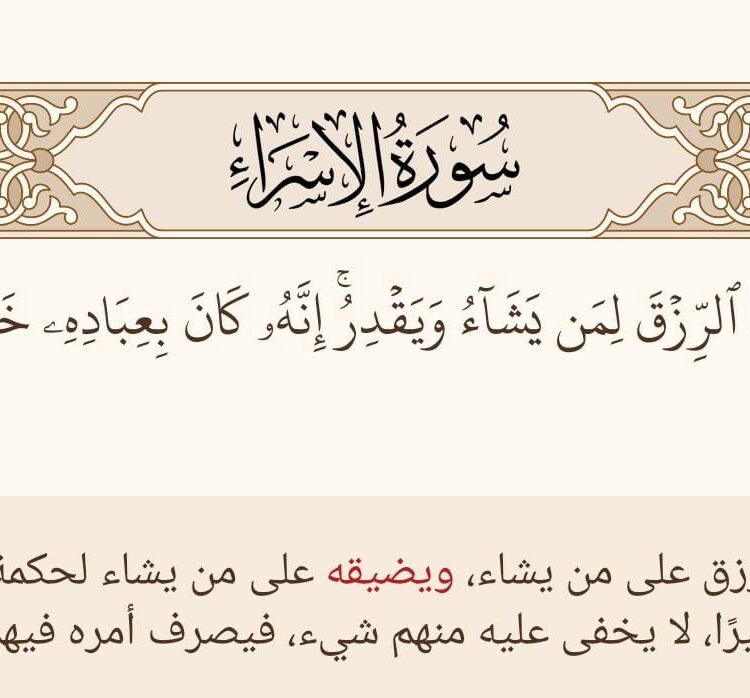 سُورَةُ الإِسْرَاءِ
ٱلرِّزْقَ لِمَن يَشَآءُ وَيَقْدِرُۚ إِنَّهُۥ كَانَ بِعِبَادِهِۦ
على من يشاء، ويضيقه على من يشاء
لا يخفى عليه منهم شيء، فيصرف أمره